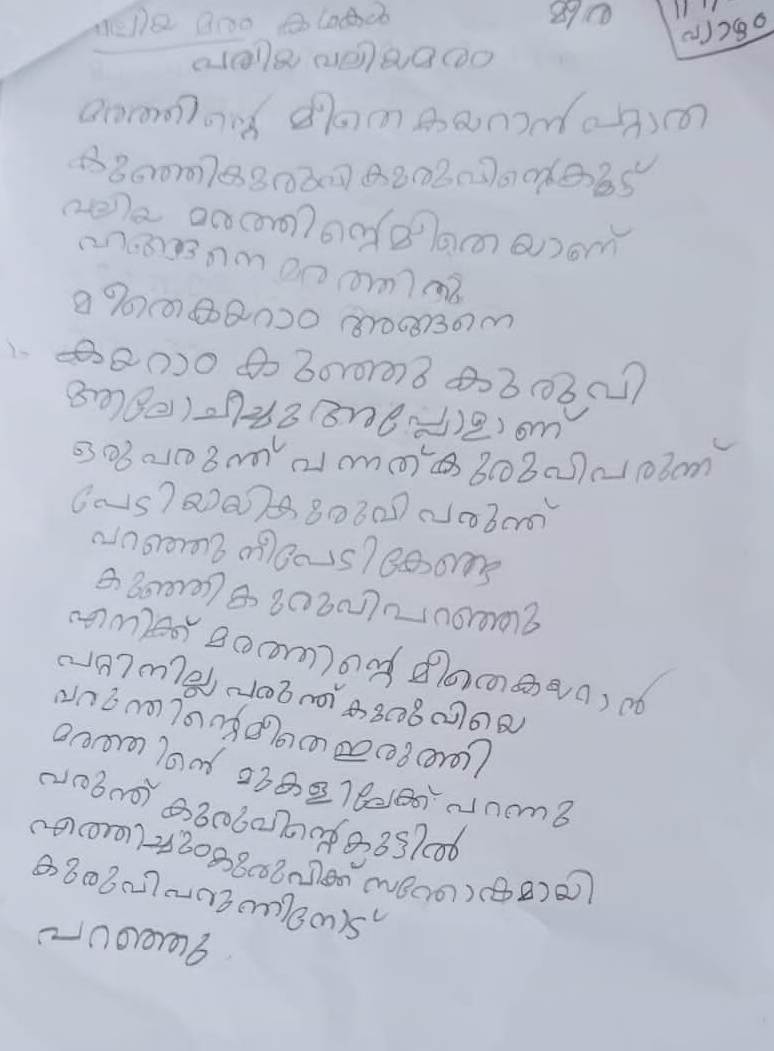 വലിയ മരം കഥകൾ
മീര
വ്യാഴം
പതിയ വലിയമരം
മരത്തിന്റെ മീതെ കയറാൻ പറ്റാത
കുഞ്ഞികുരുവി കുരുവിന്റെകൂട്
വലിയ മരത്തിന്റെമീതെ യാണ്
എങ്ങനെ മരത്തിനു
മീതെകയറാം അങ്ങനെ
കയറാം കുഞ്ഞു കുരുവി
ആലോചിച്ചു അപ്പോളാണ്
ഒരു പരുന്ത് വന്നത് കുരുവിപരുന്ന്
പേടിയായികുരുവി പരുന്ത്
പറഞ്ഞു നീപേടികേണ്ട
കുഞ്ഞികുരുവിപറഞ്ഞു
എനിക്ക് മരത്തിന്റെ മീതെകയറാൻ
പറ്റിനില്ല പരുന്ത് കുരുവിയെ
പരുന്തിന്റെമീതെഇരുത്തി
മരത്തിന്റെ മുകളിലേക്ക് പറന്നു
പരുന്ത് കുരുവിന്റെകൂട്ടിൽ
എത്തിച്ചുംകുരുവിക്ക് സന്തോഷമായി
കുരുവിപരുന്തിനോട്
പറഞ്ഞു